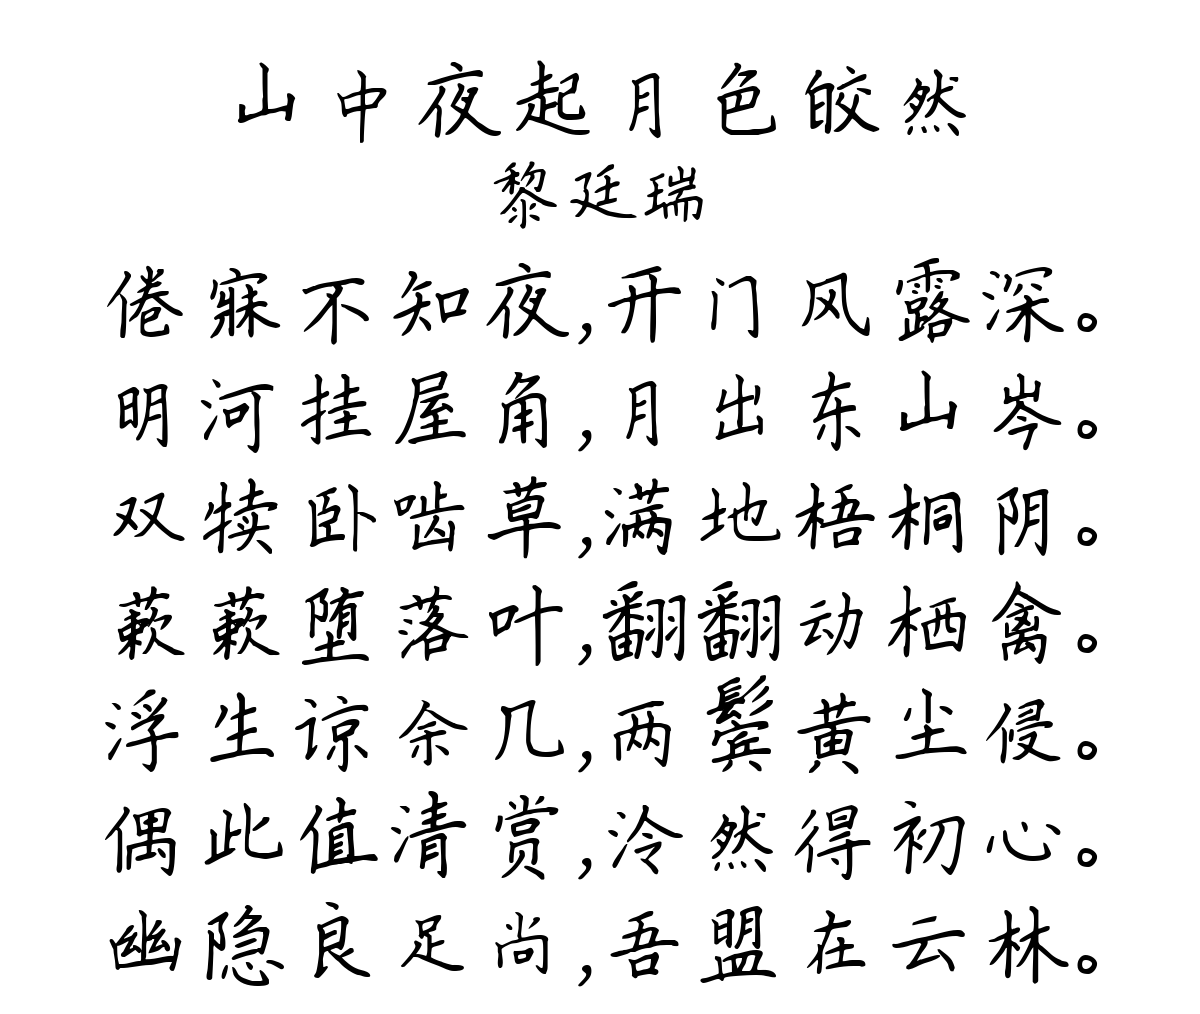 山中夜起月色皎然
黎廷瑞
倦寐不知夜,开门风露深。
明河挂屋角,月出东山岑。
双犊卧啮草,满地梧桐阴。
蔌蔌堕落叶,翻翻动栖禽。
浮生谅余几,两鬓黄尘侵。
偶此值清赏,泠然得初心。
幽隐良足尚,吾盟在云林。